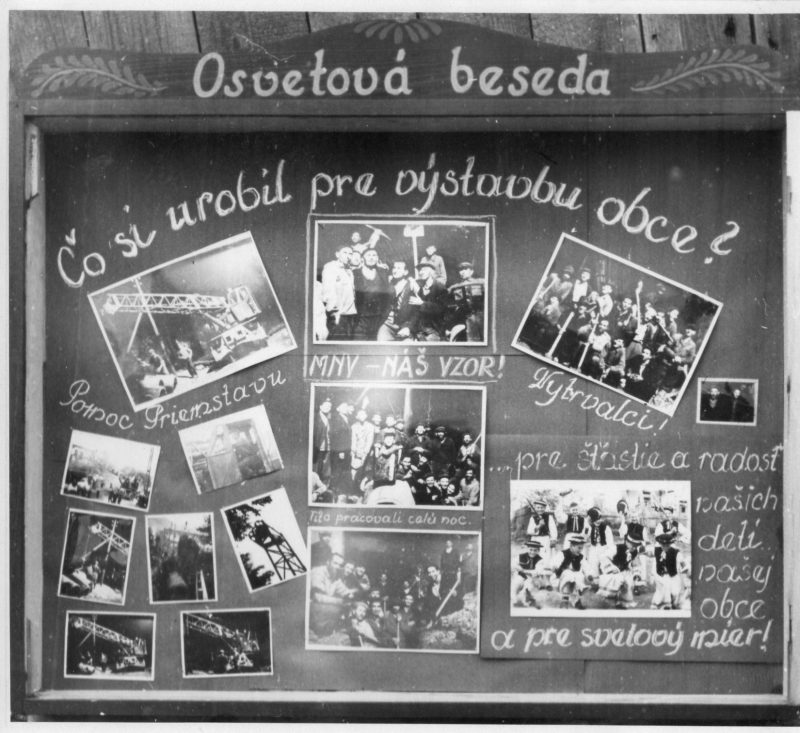 Osvetová beseda
Čo si urobil pre výstavbu obce?
MNV – NÁŠ VZOR!
Pomoc Priemstavu
Vytrvalci!
Títo pracovali celú noc.
...pre šťastie a radosť
našich
detí
našej
obce
a pre svetový mier!